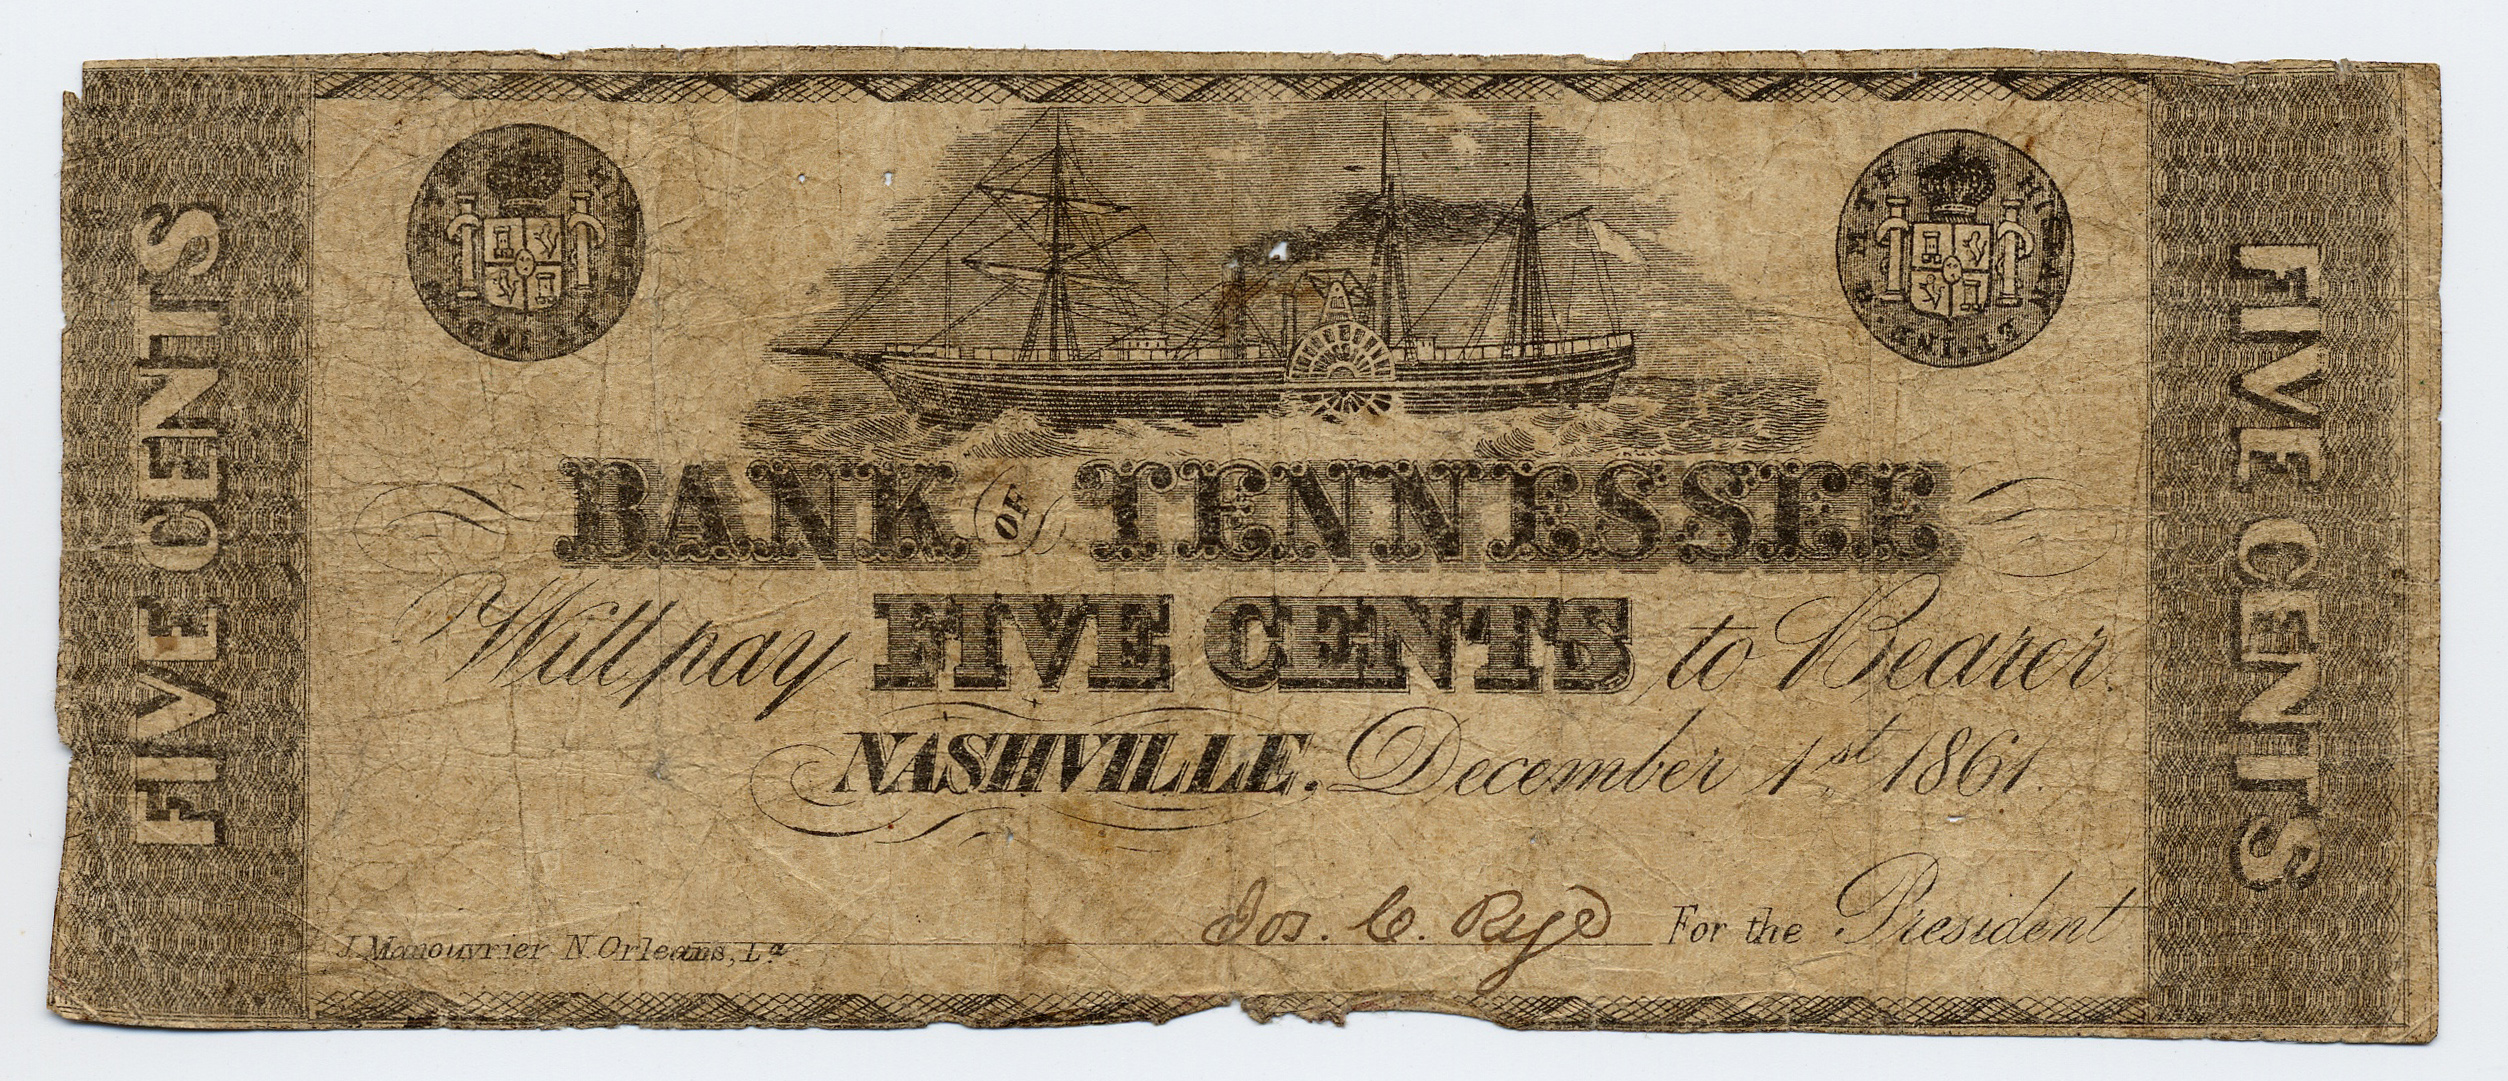 FIVE CENTS
BANK OF TENNESSEE
Will pay FIVE CENTS to Bearer.
NASHVILLE, December 1st 1861.
Jos. C. Rye For the President
J. Manouvrier N. Orleans, La
FIVE CENTS